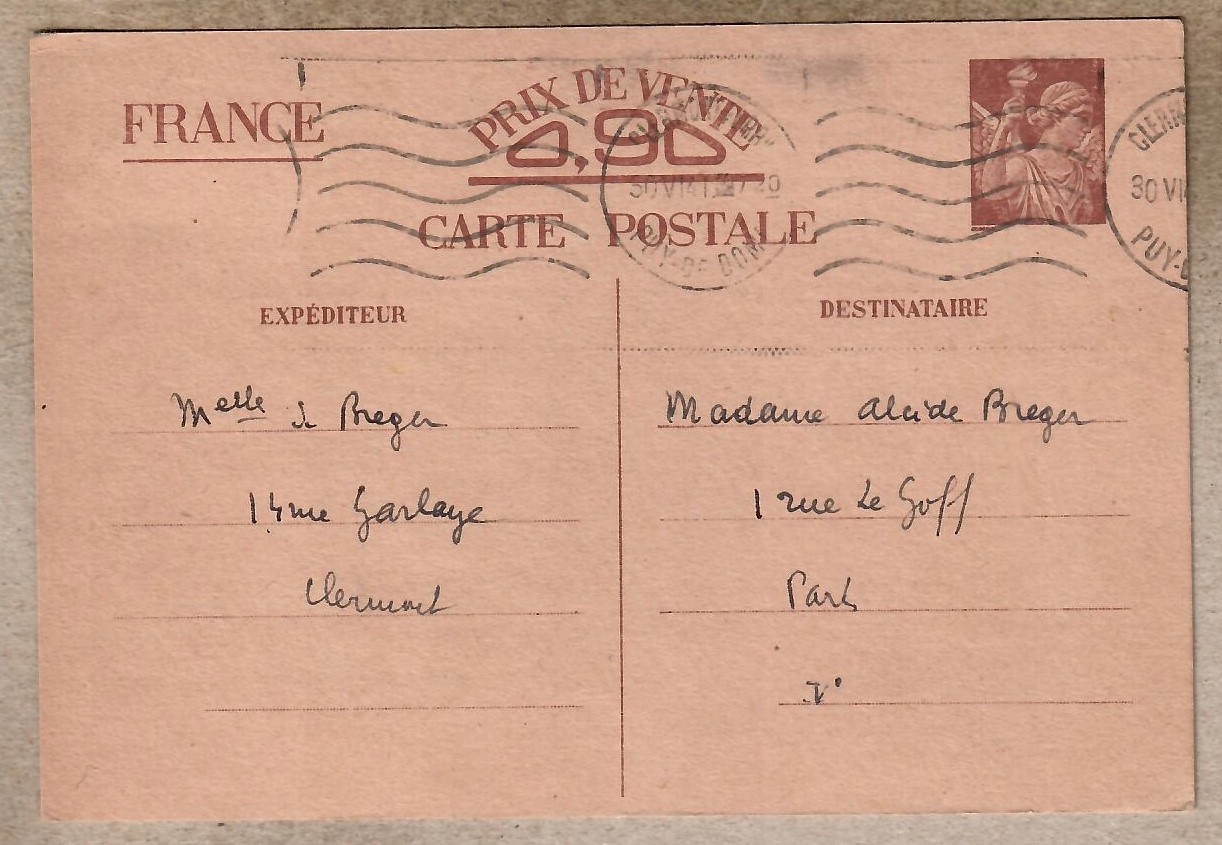 FRANCE
PRIX DE VENTE
0,90
CARTE POSTALE
30 VI 41
PUY-DE DOME
CLERM
30 VI
PUY-D
EXPÉDITEUR
Melle S. Breger
14 rue Garlaye
Clermont
DESTINATAIRE
Madame Alcide Breger
1 rue Le Goff
Paris
V°